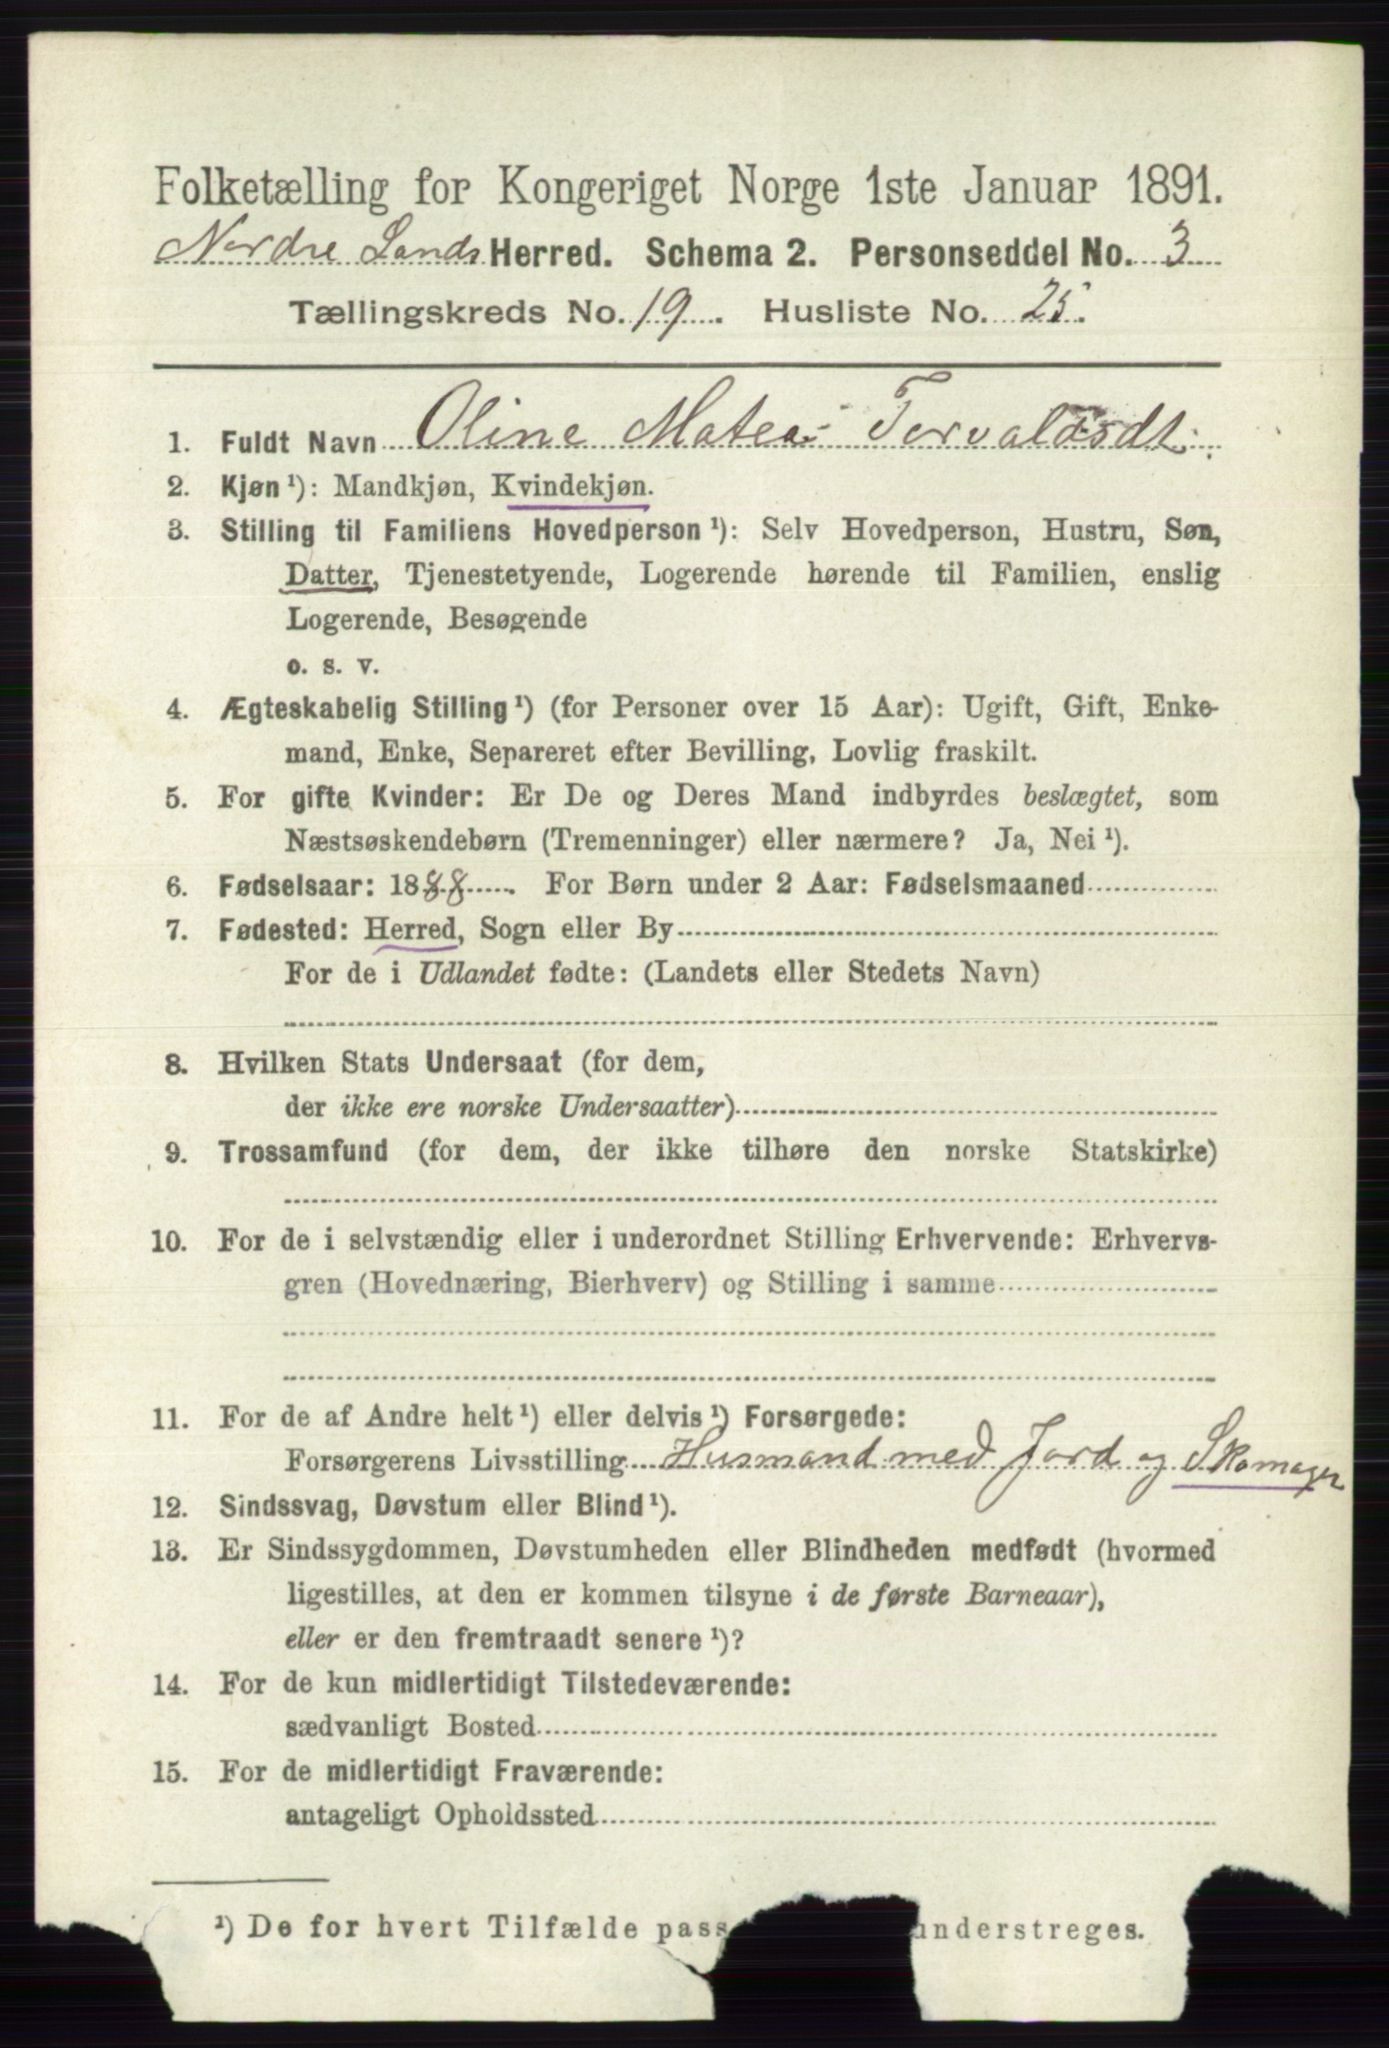 Folketælling for Kongeriget Norge 1ste Januar 1891.
Nordre Lands Herred. Schema 2. Personseddel No. 3
Tællingskreds No. 19. Husliste No. 25.
1. Fuldt Navn Oline Matea Torvaldsdt.
2. Kjøn ¹): Mandkjøn, Kvindekjøn.
3. Stilling til Familiens Hovedperson ¹): Selv Hovedperson, Hustru, Søn,
Datter, Tjenestetyende, Logerende hørende til Familien, enslig
Logerende, Besøgende
o. s. v.
4. Ægteskabelig Stilling ¹) (for Personer over 15 Aar): Ugift, Gift, Enke-
mand, Enke, Separeret efter Bevilling, Lovlig fraskilt.
5. For gifte Kvinder: Er De og Deres Mand indbyrdes beslægtet, som
Næstsøskendebørn (Tremenninger) eller nærmere? Ja, Nei ¹).
6. Fødselsaar: 1888. For Børn under 2 Aar: Fødselsmaaned
7. Fødested: Herred, Sogn eller By
For de i Udlandet fødte: (Landets eller Stedets Navn)
8. Hvilken Stats Undersaat (for dem,
der ikke ere norske Undersaatter)
9. Trossamfund (for dem, der ikke tilhøre den norske Statskirke)
10. For de i selvstændig eller i underordnet Stilling Erhvervende: Erhvervs-
gren (Hovednæring, Bierhverv) og Stilling i samme
11. For de af Andre helt ¹) eller delvis ¹) Forsørgede:
Forsørgerens Livsstilling Husmand med Jord og Skomager
12. Sindssvag, Døvstum eller Blind ¹).
13. Er Sindssygdommen, Døvstumheden eller Blindheden medfødt (hvormed
ligestilles, at den er kommen tilsyne i de første Barneaar),
eller er den fremtraadt senere ¹)?
14. For de kun midlertidigt Tilstedeværende:
sædvanligt Bosted
15. For de midlertidigt Fraværende:
antageligt Opholdssted
¹) De for hvert Tilfælde pass understreges.